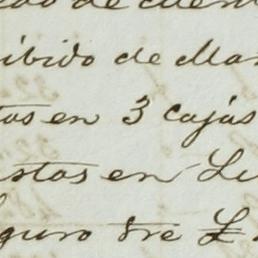 ibido de Ma
tos en 3 cajas
stas en Li
guro sre £